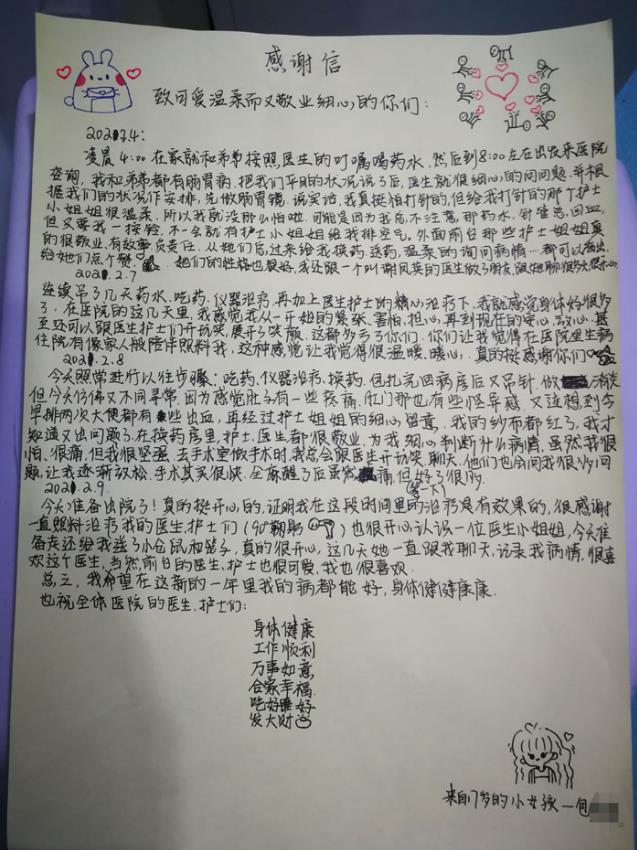 感谢信
致可爱温柔而又敬业细心的你们:
2021.2.4:
凌晨4:00在家就和弟弟按照医生的叮嘱喝药水.然后到8:00左右出发来医院
咨询,我和弟弟都有肠胃病.把我们平日的状况说了后,医生就很细心的问问题.并根
据我们的状况作安排,先做肠胃镜.说实话,我真挺怕打针的,但给我打针的那个护士
小姐姐很温柔.所以我就没那么怕啦.可能是因为我总不注意,那药水,针管总回血,
但只要我一按铃,不一会就有护士小姐姐给我排空气.外面前台那些护士姐姐真
的很敬业.有故事负责任.从她们后,过来给我换药,送药,温柔的询问病情…都可以看出.
给她们点个赞.她们的性格也很好,我还跟一个叫谢凤英的医生做了朋友,跟她聊很多,很开心.
2021.2.7
连续吊了几天药水,吃药,仪器治疗,再加上医生护士的精心治疗下,我就感觉身体好很多
了.在医院的这几天里,我感觉我从一开始的紧张,害怕,担心,再到现在的安心,放心,甚
至还可以跟医生护士们开玩笑,展开了笑颜.这都多亏了你们.你们让我觉得在医院里生病
住院有像家人般陪伴照料我,这种感觉让我觉得很温暖,暖心.真的挺感谢你们
2021.2.8
今天照常进行以往步骤:吃药,仪器治疗,换药.包扎完回病房后又吊针.做消炎
但今天仿佛又不同寻常,因为感觉肚子有一些疼痛.肛门那也有些怪异感.又联想到今
早排两次大便都有些出血,再经过护士姐姐的细心留意.我的纱布都红了,我才
知道又出问题了.在换药房里,护士,医生都很敬业,为我细心判断什么病情.虽然我很
怕,很痛.但我很坚强.去手术室做手术时,我总会跟医生开玩笑,聊天.他们也会问我很多问
题,让我逐渐放松.手术其实很快.全麻醒了后虽然痛,但好了很多.
2021.2.9.
今天准备出院了!真的挺开心的,证明我在这段时间里的治疗是有效果的,很感谢
一直照料治疗我的医生,护士们(90°鞠躬)也很开心,认识一位医生小姐姐,今天准
备走还给我送了小仓鼠和袋子,真的很开心,这几天她一直跟我聊天,记录我病情.很喜
欢这个医生.当然前日的医生,护士也很可爱.我也很喜欢.
总之,我希望在这新的一年里我的病都能好,身体健健康康.
也祝全体医院的医生.护士们:
身体健康
工作顺利
万事如意
合家幸福.
吃好睡好
发大财
来自17岁的小女孩—包